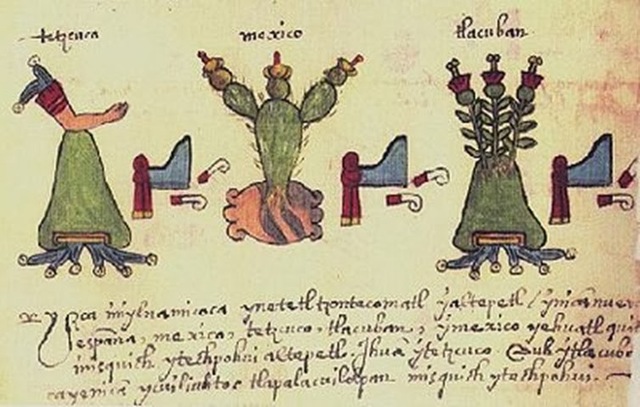 tetzcuco mexico tlacuban
yzca ymylnamicoca yn etetl tzontecomatl yaltepetl ynican nueva
españa, mexico, tetzcuco, tlacuban, ymexico yehuatl
misquich yteshpohui altepetl. Jhuã ytetzcuco. Auh ytlacuba
ycuiliuhtoc tlapalacuilolpan misquich yteshpohui.